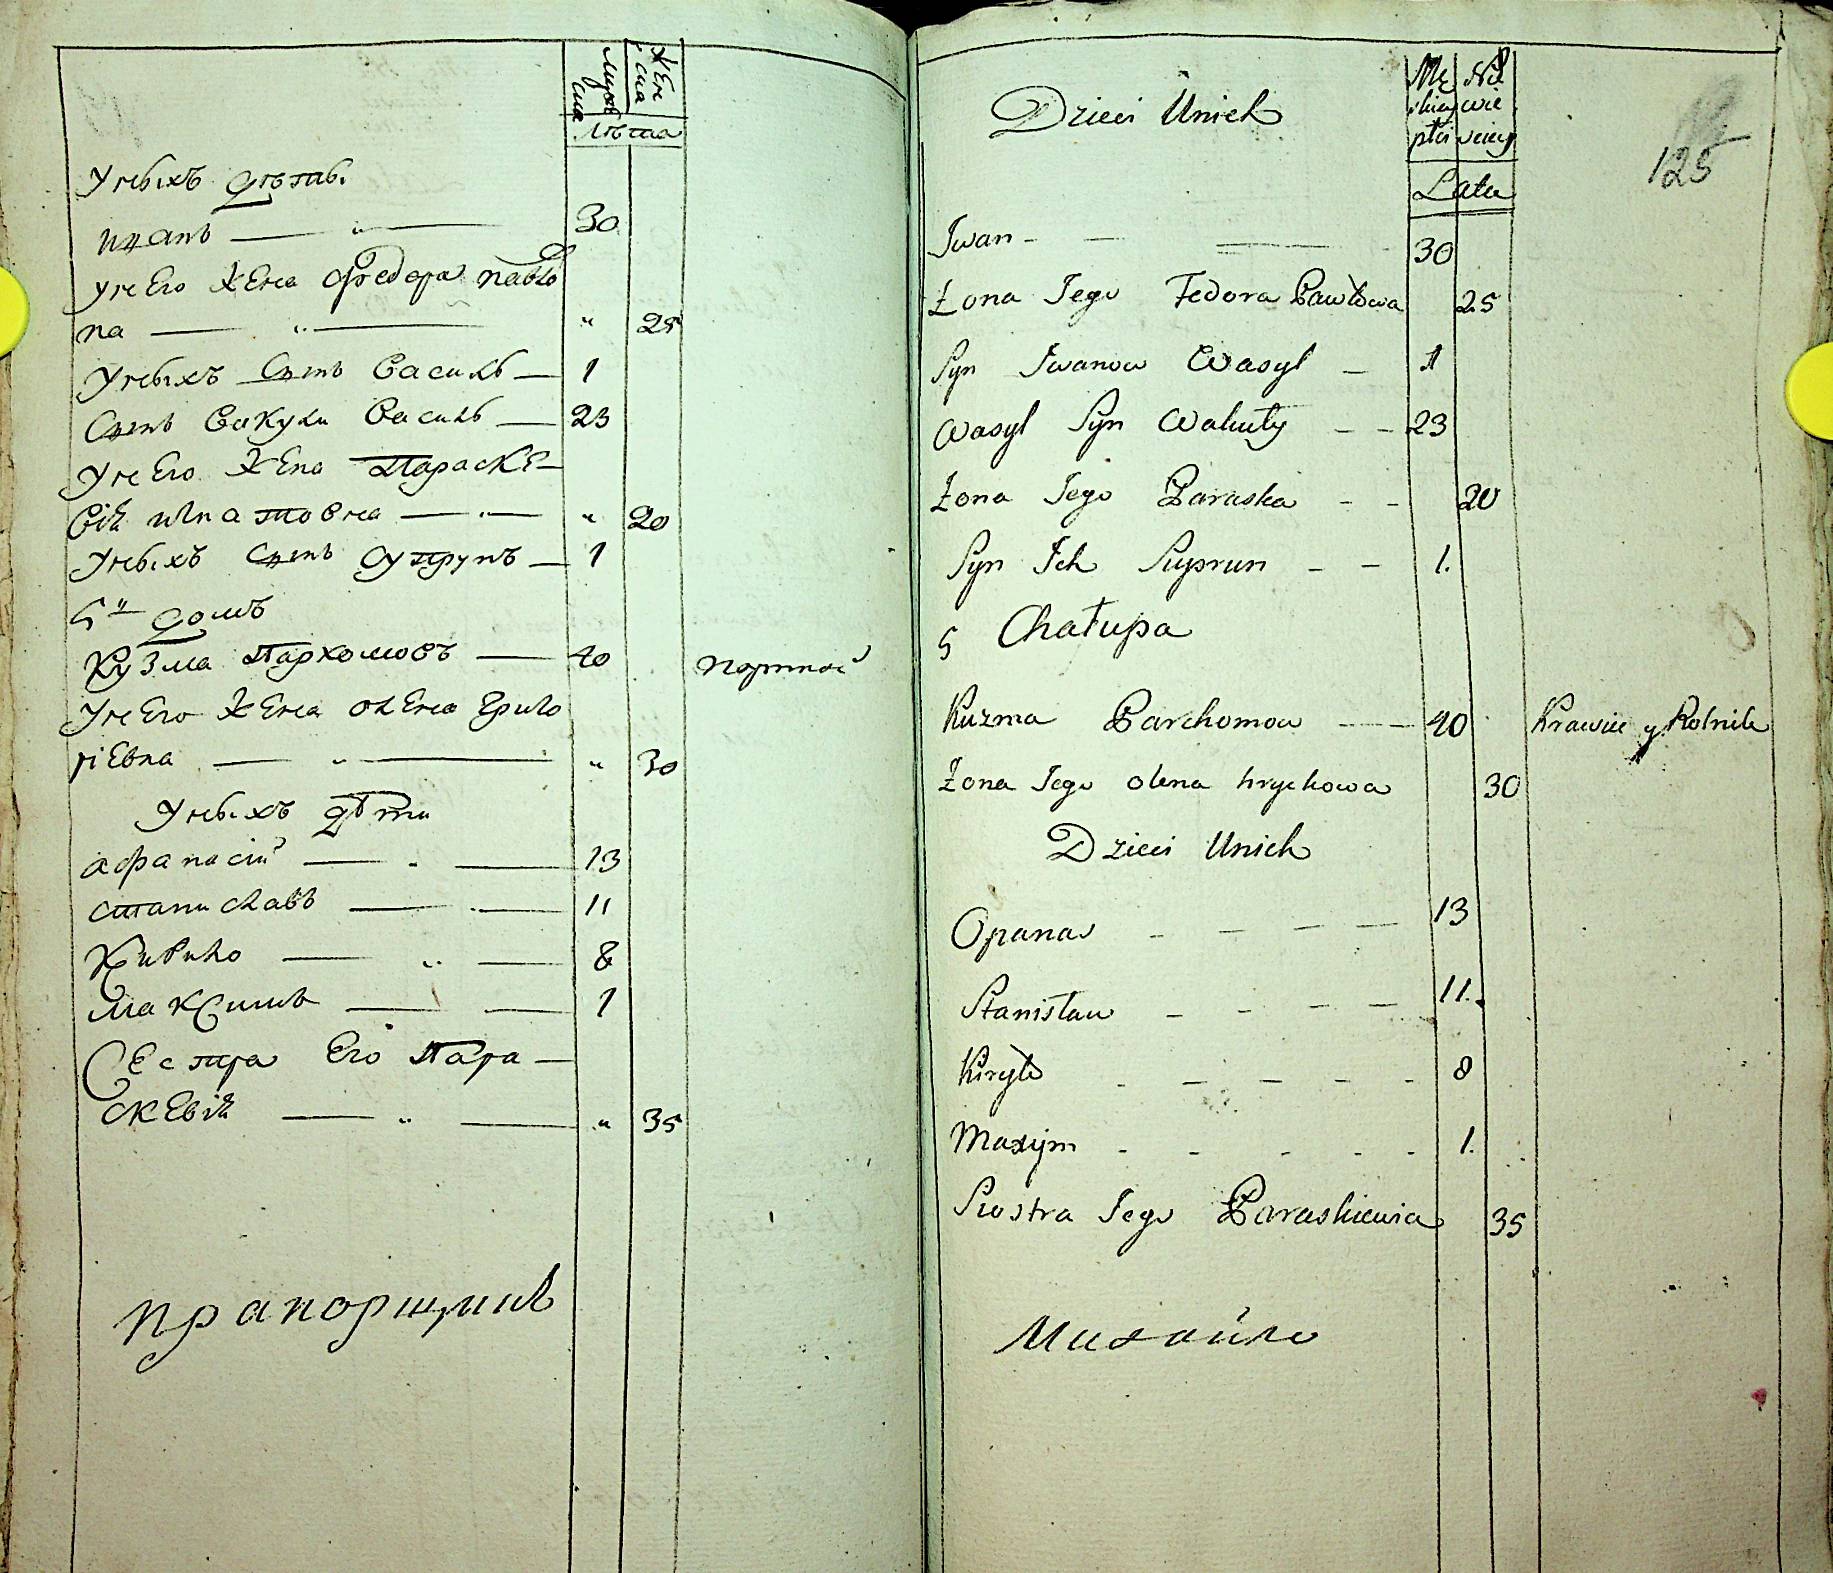 Мужеска
Женска
Лѣта
У ныхъ дѣти
Иванъ — „ — 30
У него жена Федора Павло
на — „ — „ 25
У ныхъ Сынъ Василь — 1
Сынъ Вакулы Василь — 23
У него жена Параске-
вія Игнатовна — „ — „ 20
У ныхъ Сынъ Супрунъ — 1
5й домъ
Кузма Пархомовъ — 40 портной
У него жена Олена Грыго
ріевна — „ — „ 30
У ныхъ дѣти
Афанасій — . — 13
Станиславъ — . — 11
Кирило — „ — 8
Максимъ — — 1
Сестра Его Пара-
скевія — „ — „ 35
прапорщикъ
125
Dzieci Unich
Mę skiey płci
Nie wie sciey
Lata
Iwan - — — 30
Żona Iego Fedora Pawłowa 25
Syn Iwanow Wasyl — 1
Wasyl Syn Wakuły – – 23
Żona Iego Paraska – - 20
Syn Ich Suprun – – 1.
5 Chałupa
Kuzma Parchomow — — 40 Krawiec y Rolnik
Żona Iego olena hrychowa 30
Dzieci Unich
Opanas - – – — 13
Stanisław – - – – 11.
Kiryło - – – – - 8
Maxym - - - - - 1.
Siostra Iego Paraskiewia 35
Михайло